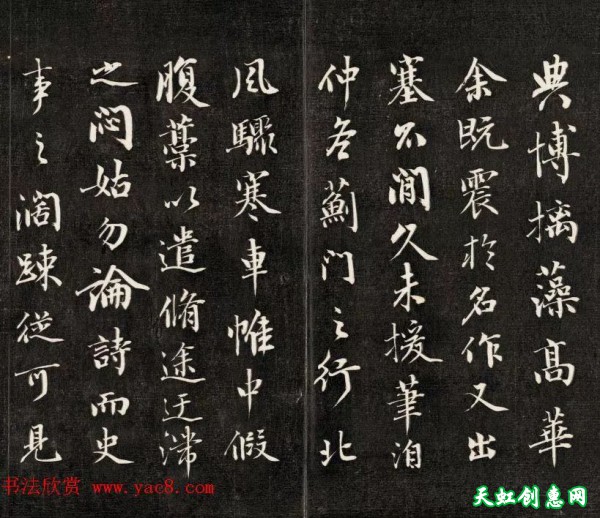 典博摛藻高華
余既震於名作又出
塞不閒久未援筆洎
仲冬薊門之行北
風驟寒車帷中假
腹藁以遣脩途迂滯
之悶姑勿論詩而史
事之濶踈從可見
书法欣赏 www.yac8.com
天虹创惠网